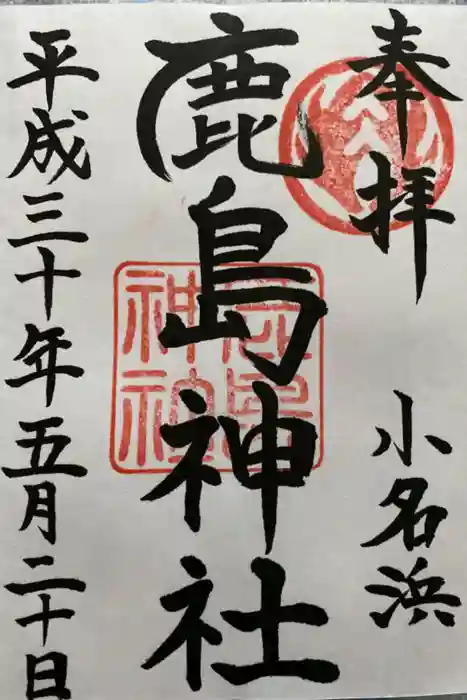 奉拝
小名浜
鹿島神社
平成三十年五月二十日